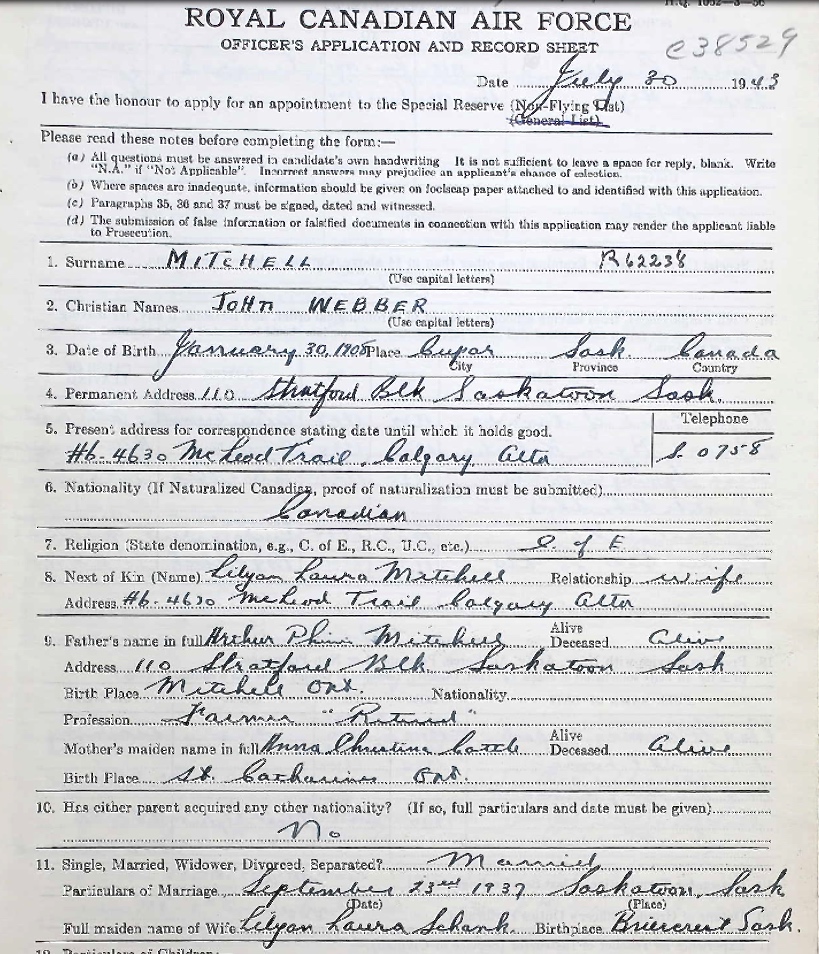 ROYAL CANADIAN AIR FORCE
OFFICER'S APPLICATION AND RECORD SHEET
C38529
Date July 30 1943
I have the honour to apply for an appointment to the Special Reserve (Non-Flying List)
(General List)
Please read these notes before completing the form:—
(a) All questions must be answered in candidate's own handwriting It is not sufficient to leave a space for reply, blank. Write
"N.A." if "Not Applicable". Incorrect answers may prejudice an applicant's chance of selection.
(b) Where spaces are inadequate, information should be given on foolscap paper attached to and identified with this application.
(c) Paragraphs 35, 36 and 37 must be signed, dated and witnessed.
(d) The submission of false information or falsified documents in connection with this application may render the applicant liable
to Prosecution.
1. Surname MITCHELL R62238
(Use capital letters)
2. Christian Names JOHN WEBBER
(Use capital letters)
3. Date of Birth January 30, 1908 Place Cupar Sask. Canada
City Province Country
4. Permanent Address 110 Stratford Blk Saskatoon Sask.
5. Present address for correspondence stating date until which it holds good. Telephone
#6-4630 McLeod Trail, Calgary Alta S. 0758
6. Nationality (If Naturalized Canadian, proof of naturalization must be submitted)
Canadian
7. Religion (State denomination, e.g., C. of E., R.C., U.C., etc.) C. of E
8. Next of Kin (Name) Lilyan Laura Mitchell Relationship wife
Address #6-4630 McLeod Trail Calgary Alta
9. Father's name in full Arthur Mitchell Alive Deceased Alive
Address 110 Stratford Blk Saskatoon Sask
Birth Place Mitchell Ont. Nationality
Profession Farmer "Retired"
Mother's maiden name in full Anna Christina Cattle Alive Deceased Alive
Birth Place St. Catharines Ont.
10. Has either parent acquired any other nationality? (If so, full particulars and date must be given)
No
11. Single, Married, Widower, Divorced, Separated? Married
Particulars of Marriage September 23rd 1937 Saskatoon, Sask
(Date) (Place)
Full maiden name of Wife Lilyan Laura Schank. Birthplace Briercrest Sask.
12. Particulars of Children: